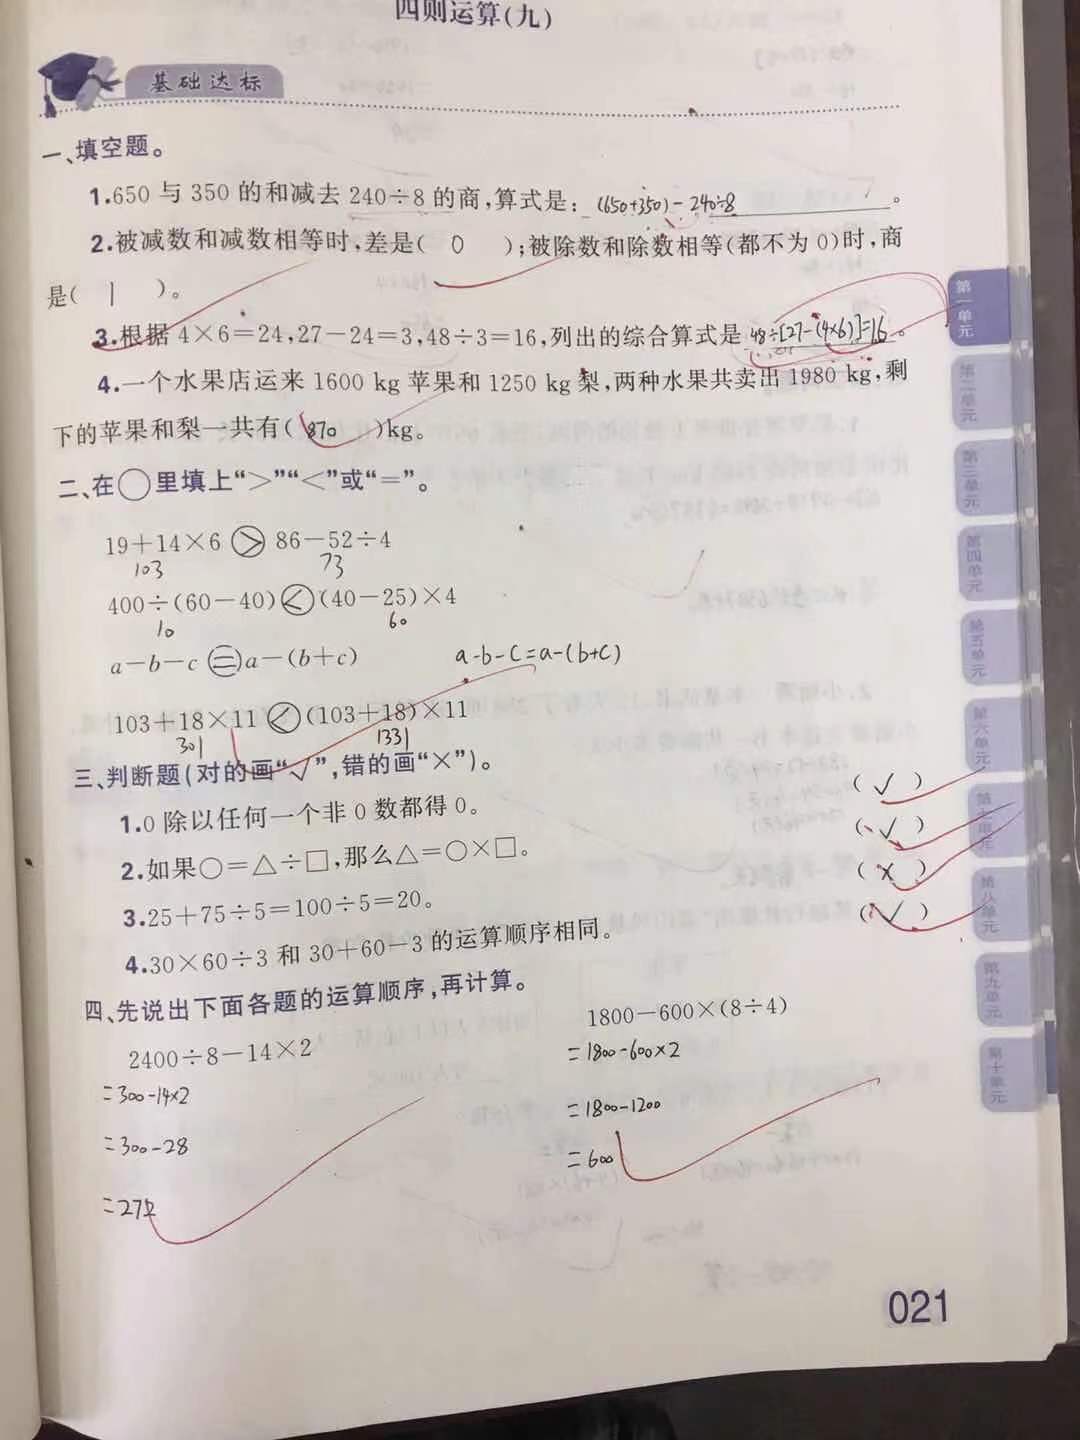 四则运算(九)
基础达标
一、填空题。
1.650 与 350 的和减去 240÷8 的商,算式是: (650+350)-240÷8 。
2.被减数和减数相等时,差是( 0 );被除数和除数相等(都不为 0)时,商
是( 1 )。
3.根据 4×6=24,27-24=3,48÷3=16,列出的综合算式是 48÷[27-(4×6)]=16 。
4.一个水果店运来 1600 kg 苹果和 1250 kg 梨,两种水果共卖出 1980 kg,剩
下的苹果和梨一共有( 870 )kg。
二、在○里填上“>”“<”或“=”。
19+14×6 > 86-52÷4
103 73
400÷(60-40) < (40-25)×4
10 60
a-b-c = a-(b+c) a-b-c=a-(b+c)
103+18×11 < (103+18)×11
301 1331
三、判断题(对的画“√”,错的画“×”)。
1.0 除以任何一个非 0 数都得 0。 ( √ )
2.如果○=△÷□,那么△=○×□。 ( √ )
3.25+75÷5=100÷5=20。 ( × )
4.30×60÷3 和 30+60-3 的运算顺序相同。 ( √ )
四、先说出下面各题的运算顺序,再计算。
2400÷8-14×2 1800-600×(8÷4)
=300-14×2 =1800-600×2
=300-28 =1800-1200
=272 =600
021
第一单元
第二单元
第三单元
第四单元
第五单元
第六单元
第七单元
第八单元
第九单元
第十单元